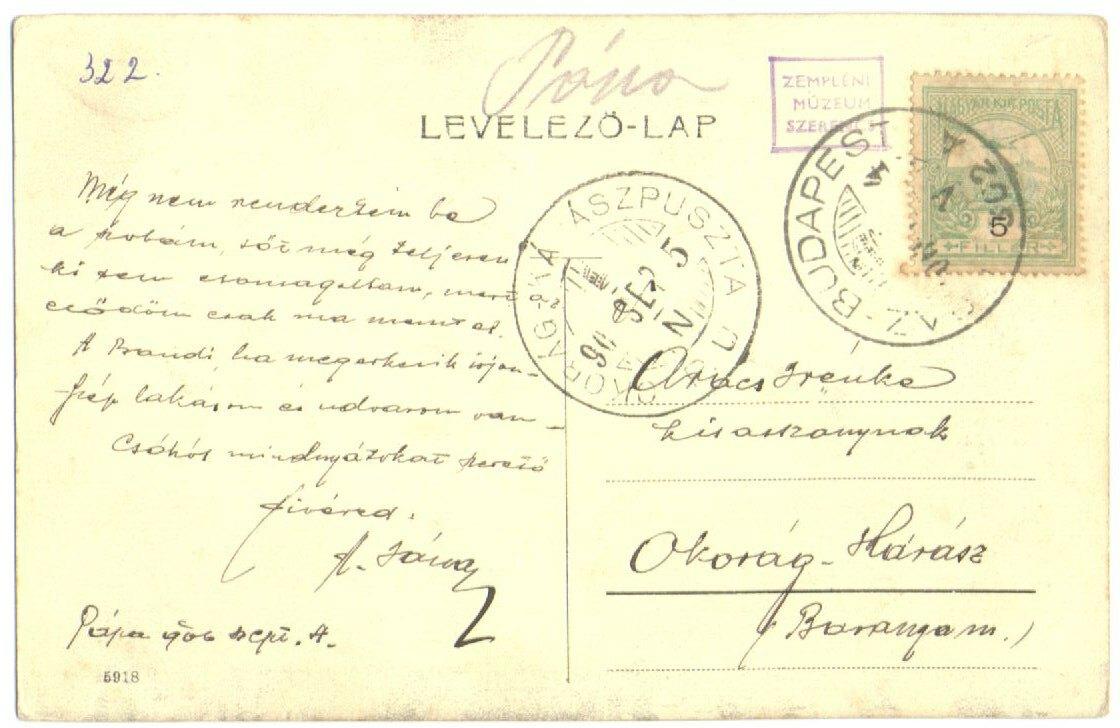 322.
Pápa
LEVELEZŐ-LAP
ZEMPLÉNI
MÚZEUM
SZERENCS
MAGYAR KIR. POSTA
5
FILLÉR
BUDAPEST
202
OKORÁG-KÁRÁSZPUSZTA
906 SEP 5
Még nem rendeztem be
a szobám, sőt még teljesen
ki sem csomagoltam, mert
csak ma ment el.
A Brandi, ha megérkezik írjon
Szép lakásom és udvarom van
Csókol mindnyájatokat szerető
fivéred.
A. János
2
Pápa 906 szept. 4.
5918
Arács Irénke
kisasszonynak
Okorág-Kárász
(Baranya m.)